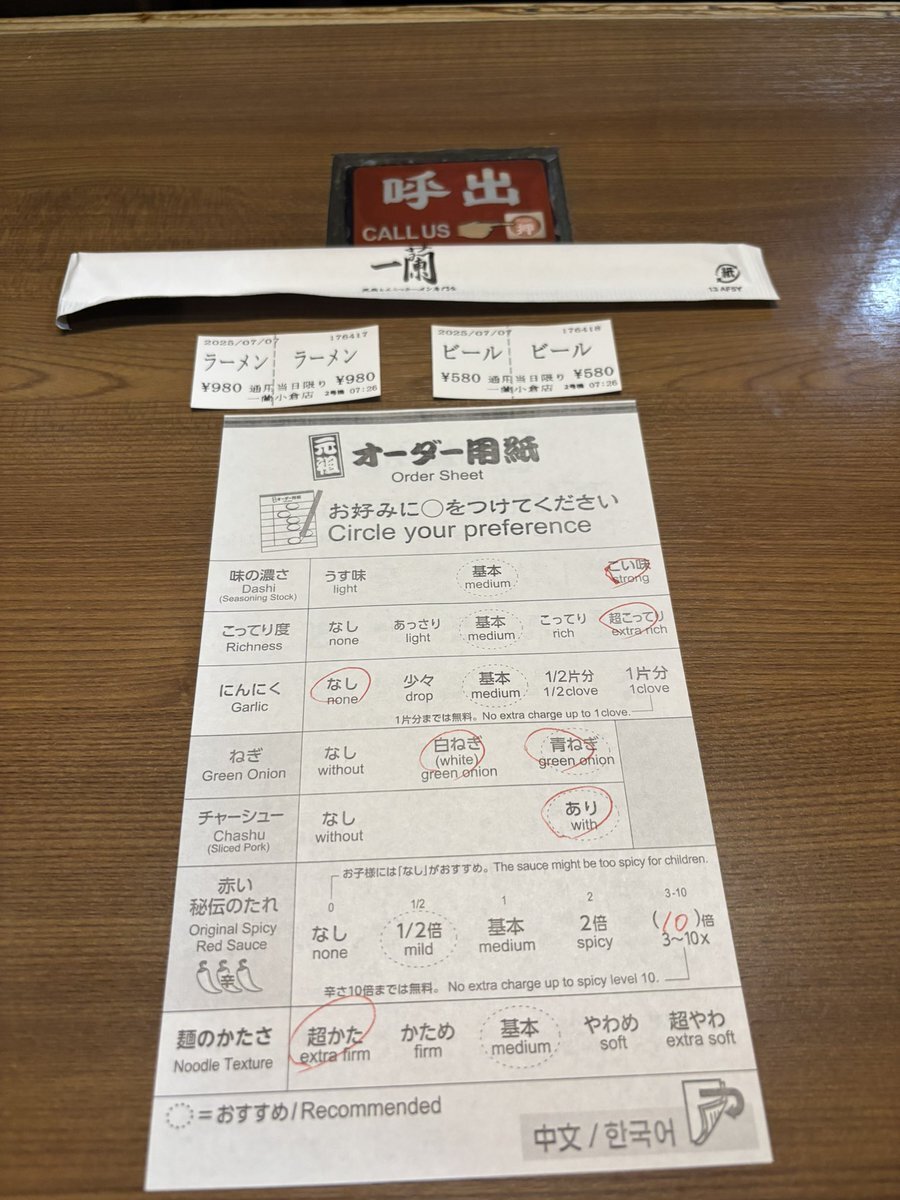 呼出
CALL US 押
一蘭
紙
13 AFSY
2025/07/07 176417
ラーメン ラーメン
¥980 通用当日限り ¥980
一蘭小倉店 2号機 07:26
2025/07/07 176418
ビール ビール
¥580 通用当日限り ¥580
一蘭小倉店 2号機 07:26
元祖 オーダー用紙
Order Sheet
オーダー用紙
お好みに○をつけてください
Circle your preference
味の濃さ うす味 基本 こい味
Dashi light medium strong
(Seasoning Stock)
こってり度 なし あっさり 基本 こってり 超こってり
Richness none light medium rich extra rich
にんにく なし 少々 基本 1/2片分 1片分
Garlic none drop medium 1/2clove 1clove
1片分までは無料。No extra charge up to 1clove.
ねぎ なし 白ねぎ 青ねぎ
Green Onion without (white) green onion
green onion
チャーシュー なし あり
Chashu without with
(Sliced Pork)
お子様には「なし」がおすすめ。The sauce might be too spicy for children.
赤い
秘伝のたれ
Original Spicy
Red Sauce
辛
0 1/2 1 2 3-10
なし 1/2倍 基本 2倍 (10)倍
none mild medium spicy 3~10x
辛さ10倍までは無料。No extra charge up to spicy level 10.
麺のかたさ 超かた かため 基本 やわめ 超やわ
Noodle Texture extra firm firm medium soft extra soft
=おすすめ/Recommended
中文 / 한국어